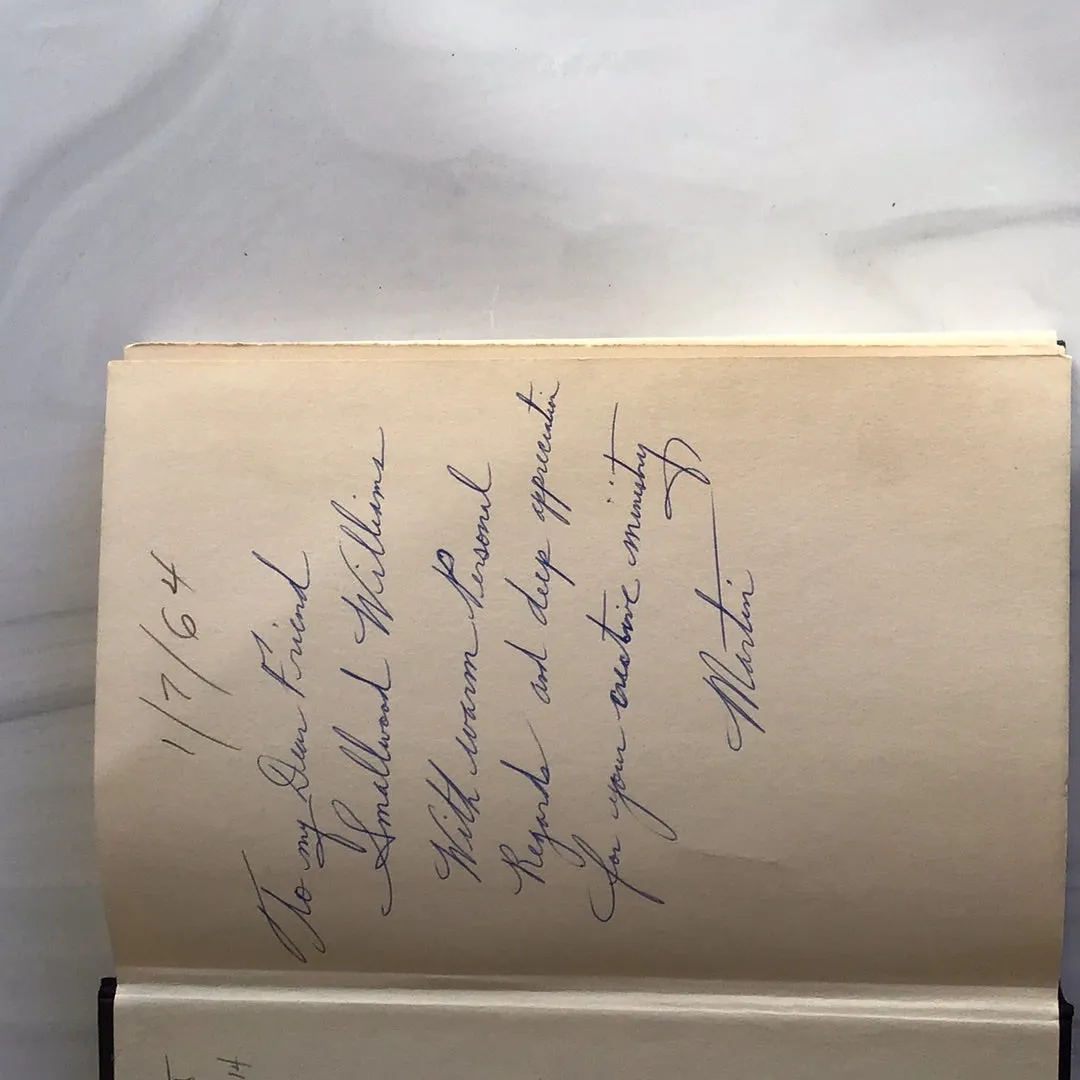 1/7/64
To my Dear Friend
Smallwood Williams
With warm Personal
Regards and deep appreciation
for your creative ministry
Martin
14